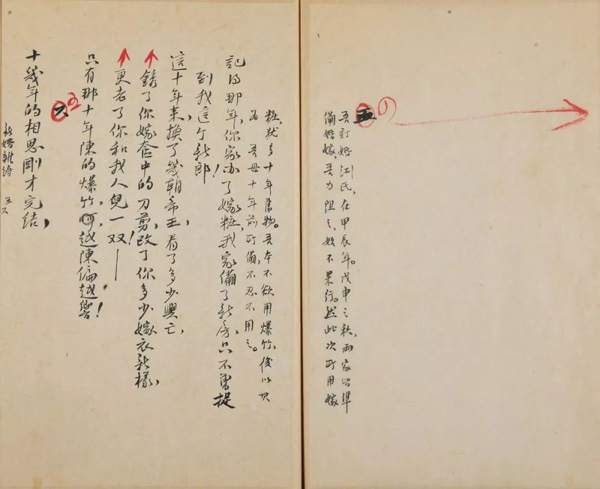 五
吾訂婚江氏,在甲辰年。戊申之秋,兩家皆準
備婚嫁,吾力阻之,始不果行。然此次所用嫁
粧,猶多十年舊物。吾本不欲用爆竹,後以其
為吾母十年前所備,不忍不用之。
記得那年,你家办了嫁粧,我家備了新房,只不曾捉
到我這个新郎!
這十年來,換了幾朝帝王,看了多少興亡,
銹了你嫁奩中的刀剪,改了你多少嫁衣新樣,
更老了你和我人兒一双!——
只有那十年陳的爆竹,越陳偏越響!
六
十幾年的相思剛才完結,
新婚雜詩 五六